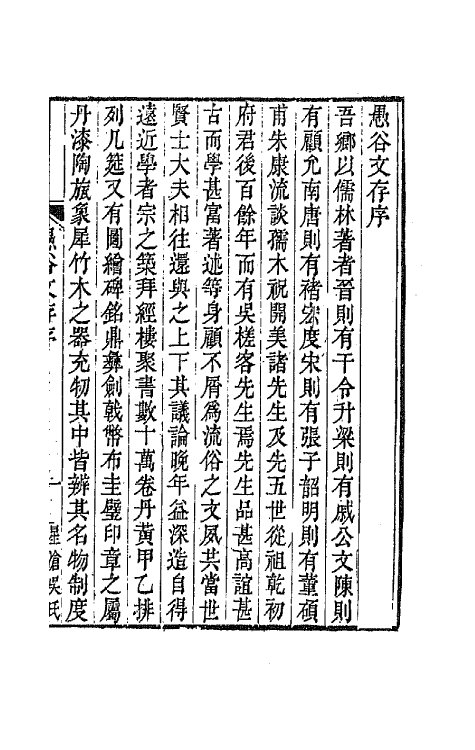 愚谷文存序
吾鄉以儒林著者晉則有干令升梁則有戚公文陳則
有顧允南唐則有褚宏度宋則有張子韶明則有董碩
甫朱康流談孺木祝開美諸先生及先五世從祖乾初
府君後百餘年而有吳槎客先生焉先生品甚高誼甚
古而學甚富著述等身顧不屑爲流俗之文夙共當世
賢士大夫相往還與之上下其議論晚年益深造自得
遠近學者宗之築拜經樓聚書數十萬卷丹黃甲乙排
列几筵又有圖繪碑銘鼎彝劍戟幣布圭璧印章之屬
丹漆陶旊象犀竹木之器充牣其中皆辨其名物制度
愚谷文存序
吳氏